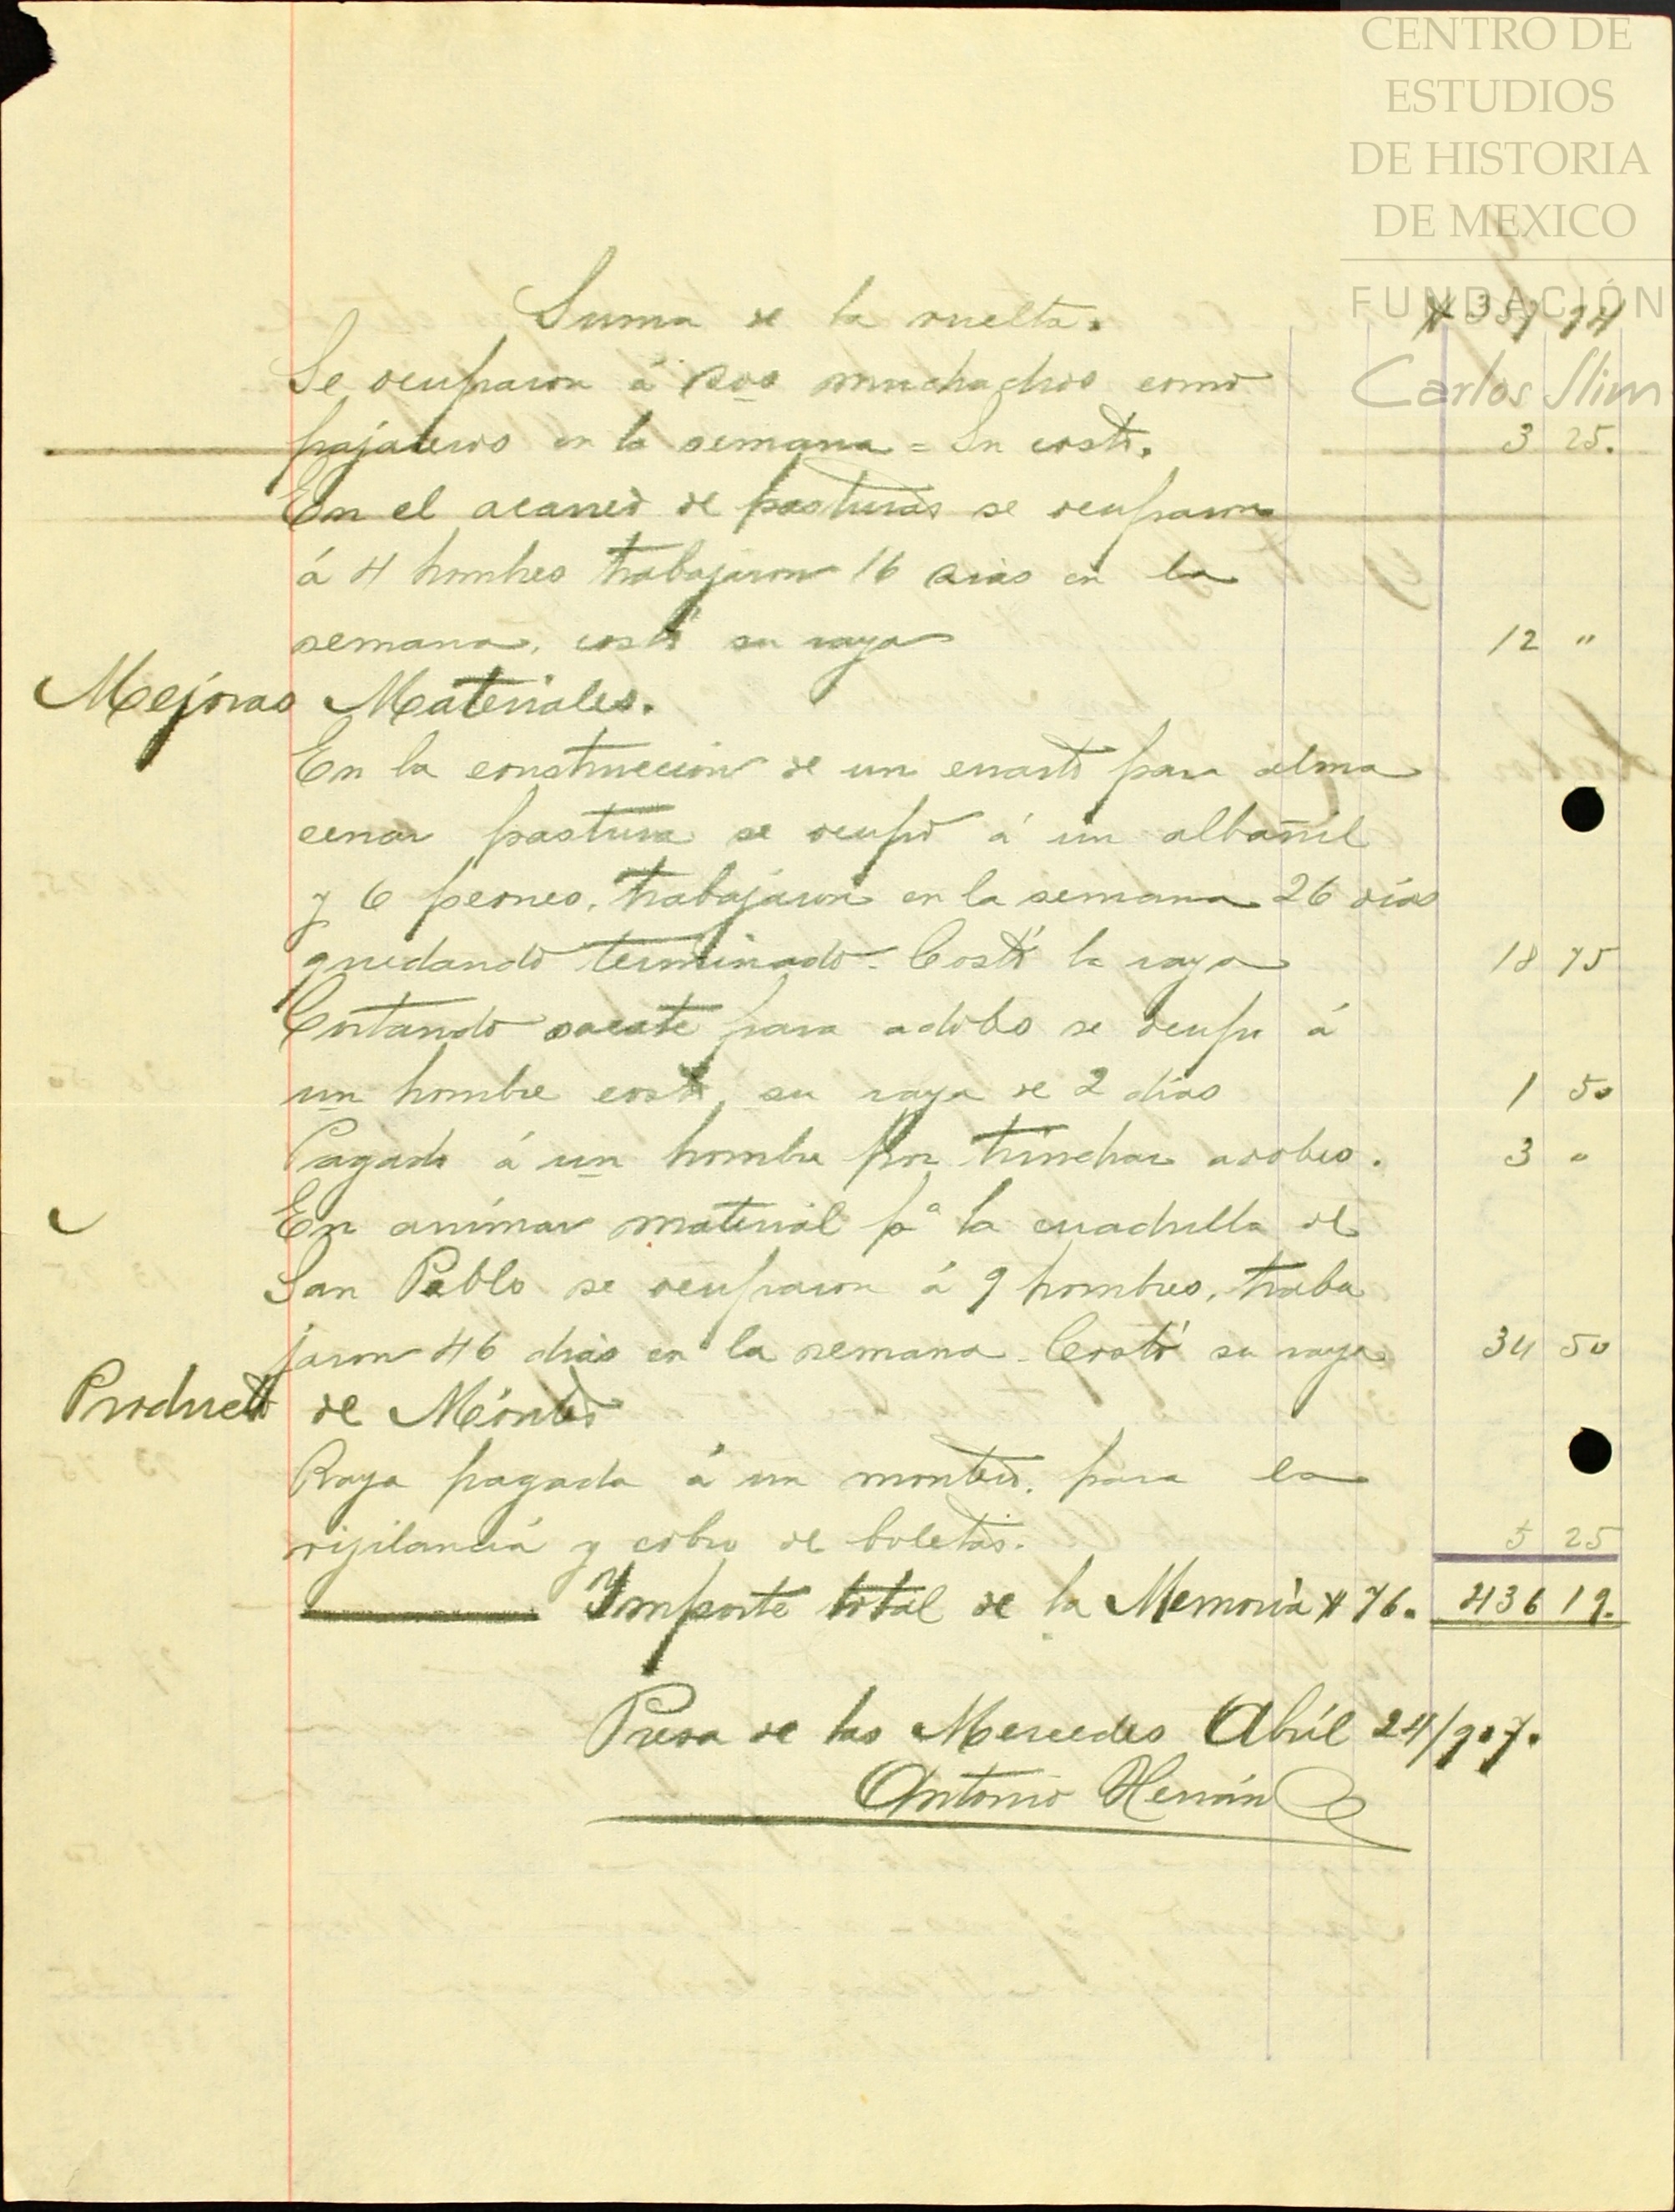 CENTRO DE
ESTUDIOS
DE HISTORIA
DE MEXICO
FUNDACIÓN
Carlos Slim
Suma de la vuelta. $ 357 94
Se ocuparon á dos muchachos como
pajareros en la semana = Su costo. 3 25.
En el acarreo de pasturas se ocuparon
á 4 hombres trabajaron 16 dias en la
semana, costó su raya 12 "
Mejoras Materiales.
En la construccion de un cuarto para alma
cenar pastura se ocupó á un albañil
y 6 peones, trabajaron en la semana 26 días
quedando terminado. Costó la raya 18 75
Cortando sacate para adobo se ocupó á
un hombre costó su raya de 2 días 1 50
Pagado á un hombre por trinchar adobes. 3 "
En arrimar material pa la cuadrilla de
San Pablo se ocuparon á 9 hombres, traba
jaron 46 dias en la semana. Costó su raya 34 50
Producto de Móntes
Raya pagada á un montero, para la
vijilancia y cobro de boletas. 5 25
Importe total de la Memoria # 76. 436 19.
Presa de las Mercedes Abríl 24/907.
Antonio Hernán